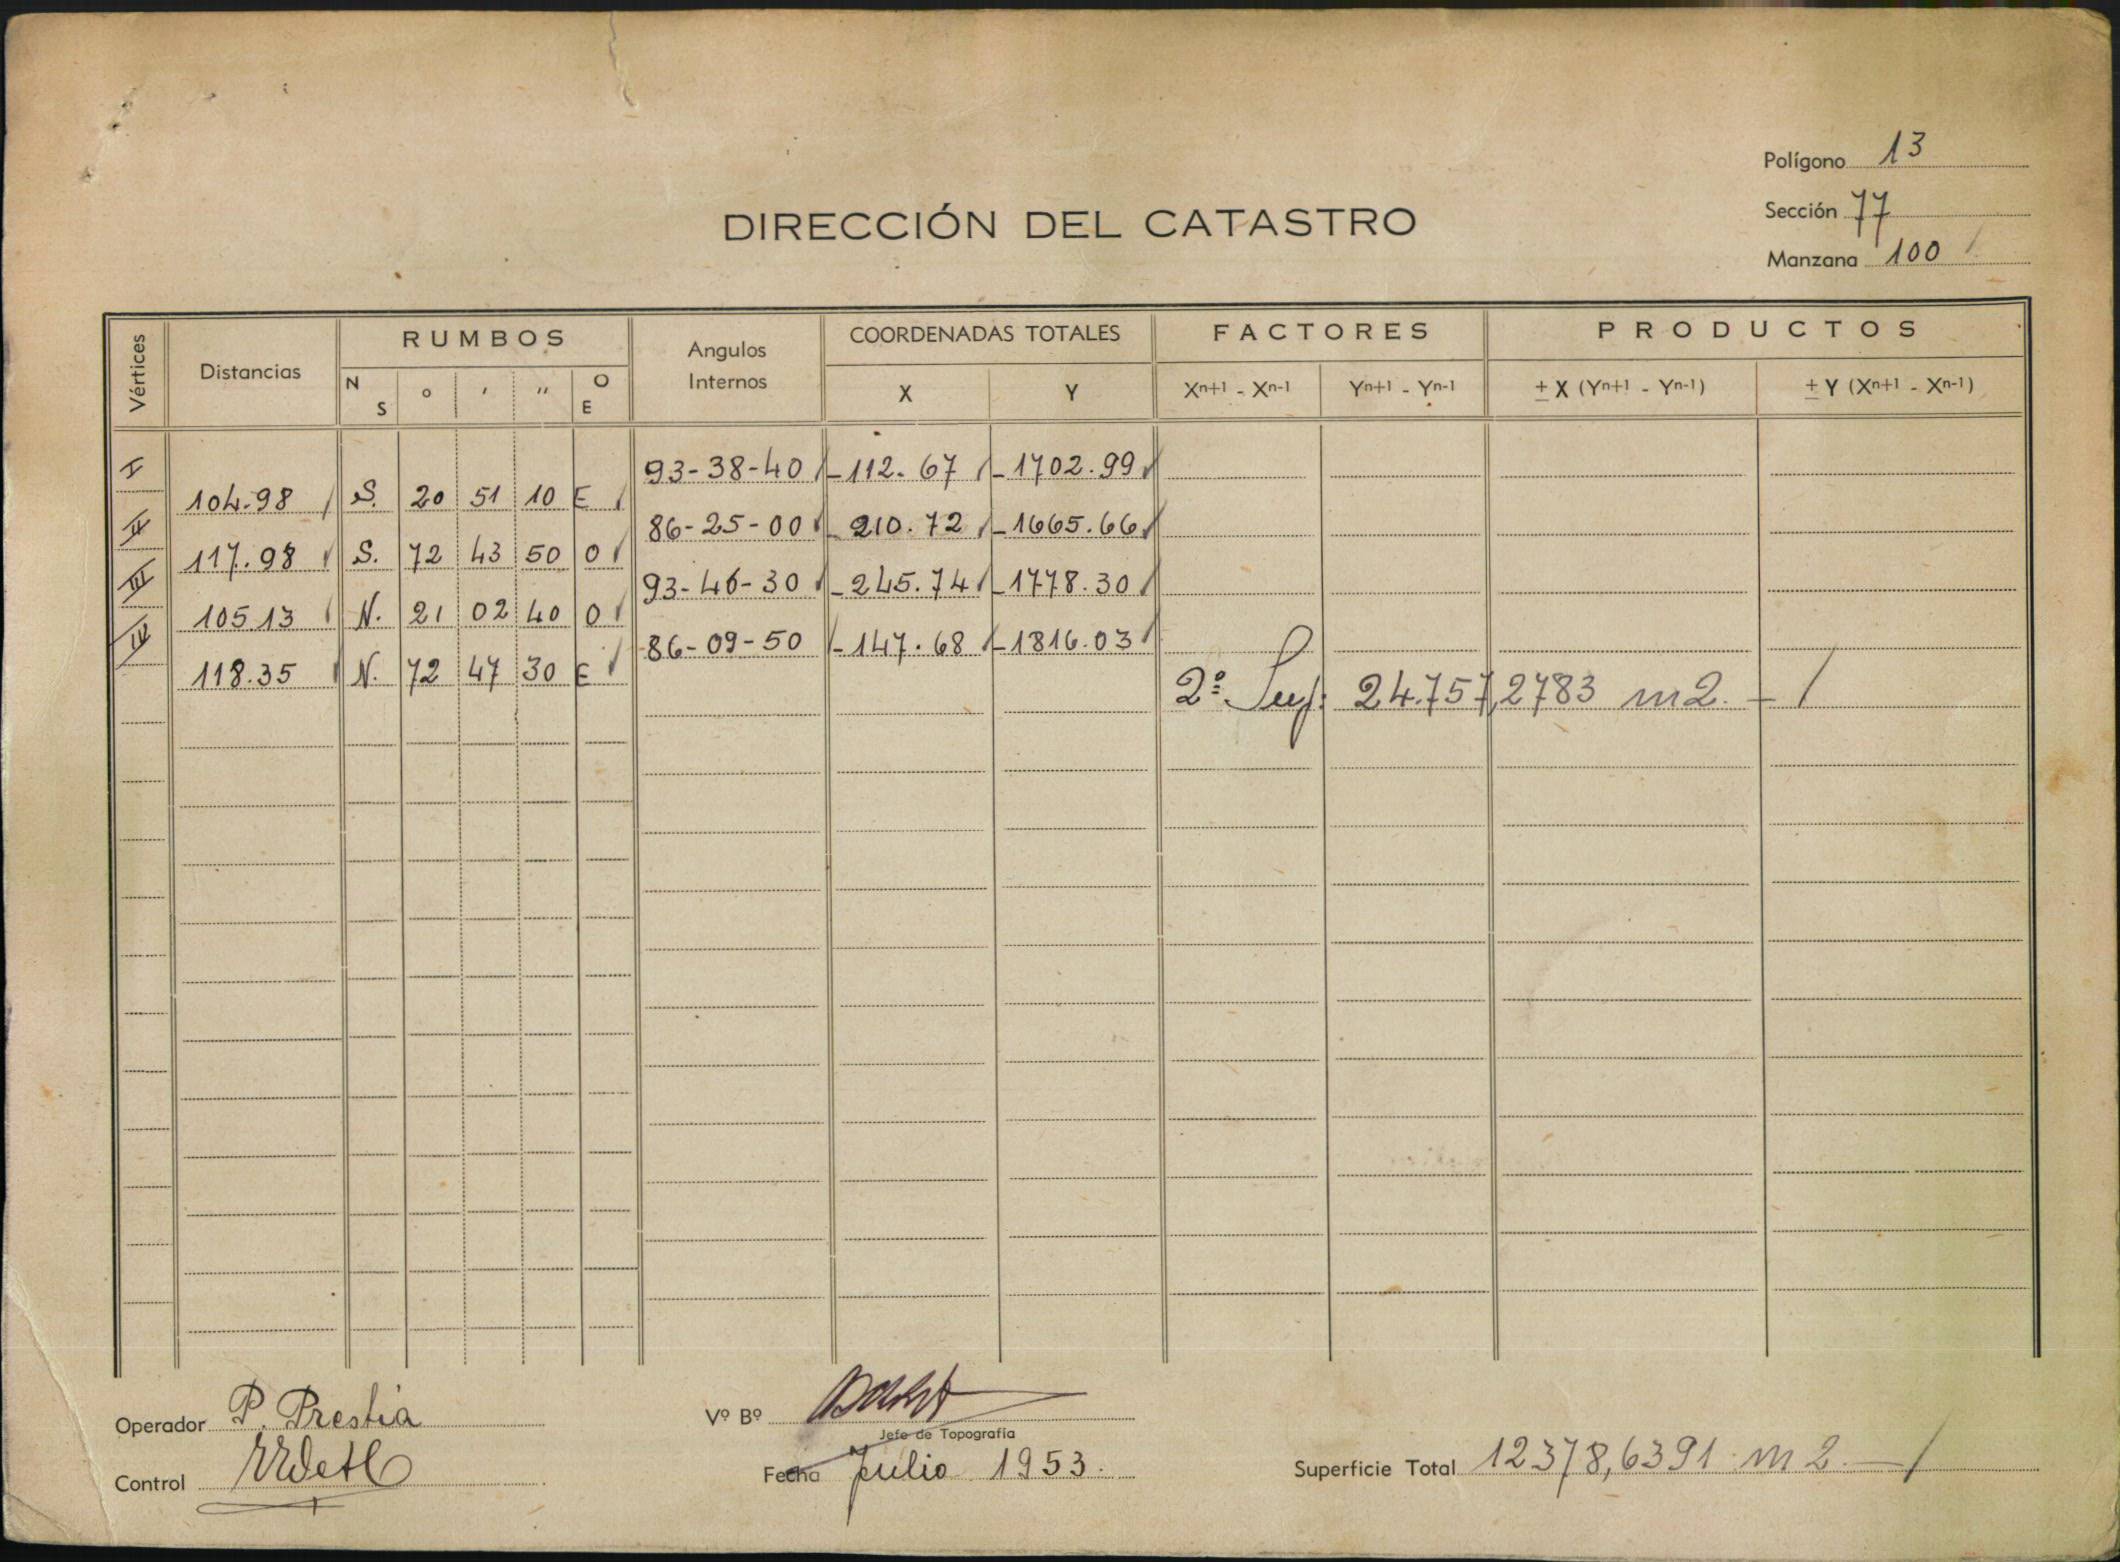 Polígono 13
Sección 77
DIRECCIÓN DEL CATASTRO
Manzana 100
Vértices Distancias RUMBOS Angulos Internos COORDENADAS TOTALES FACTORES PRODUCTOS
N S ° ' '' O E X Y Xn+1 - Xn-1 Yn+1 - Yn-1 ± X (Yn+1 - Yn-1) ± Y (Xn+1 - Xn-1)
I 93-38-40 -112.67 -1702.99
104.98 S. 20 51 10 E
II 86-25-00 -210.72 -1665.66
117.98 S. 72 43 50 O
III 93-46-30 -245.74 -1778.30
105.13 N. 21 02 40 O
IV 86-09-50 -147.68 -1816.03
118.35 N. 72 47 30 E
2º Sup: 24.757,2783 m2. -
Operador P. Prestia
Vº Bº
Jefe de Topografía
Control
Fecha Julio 1953.
Superficie Total 12378,6391 m2 -